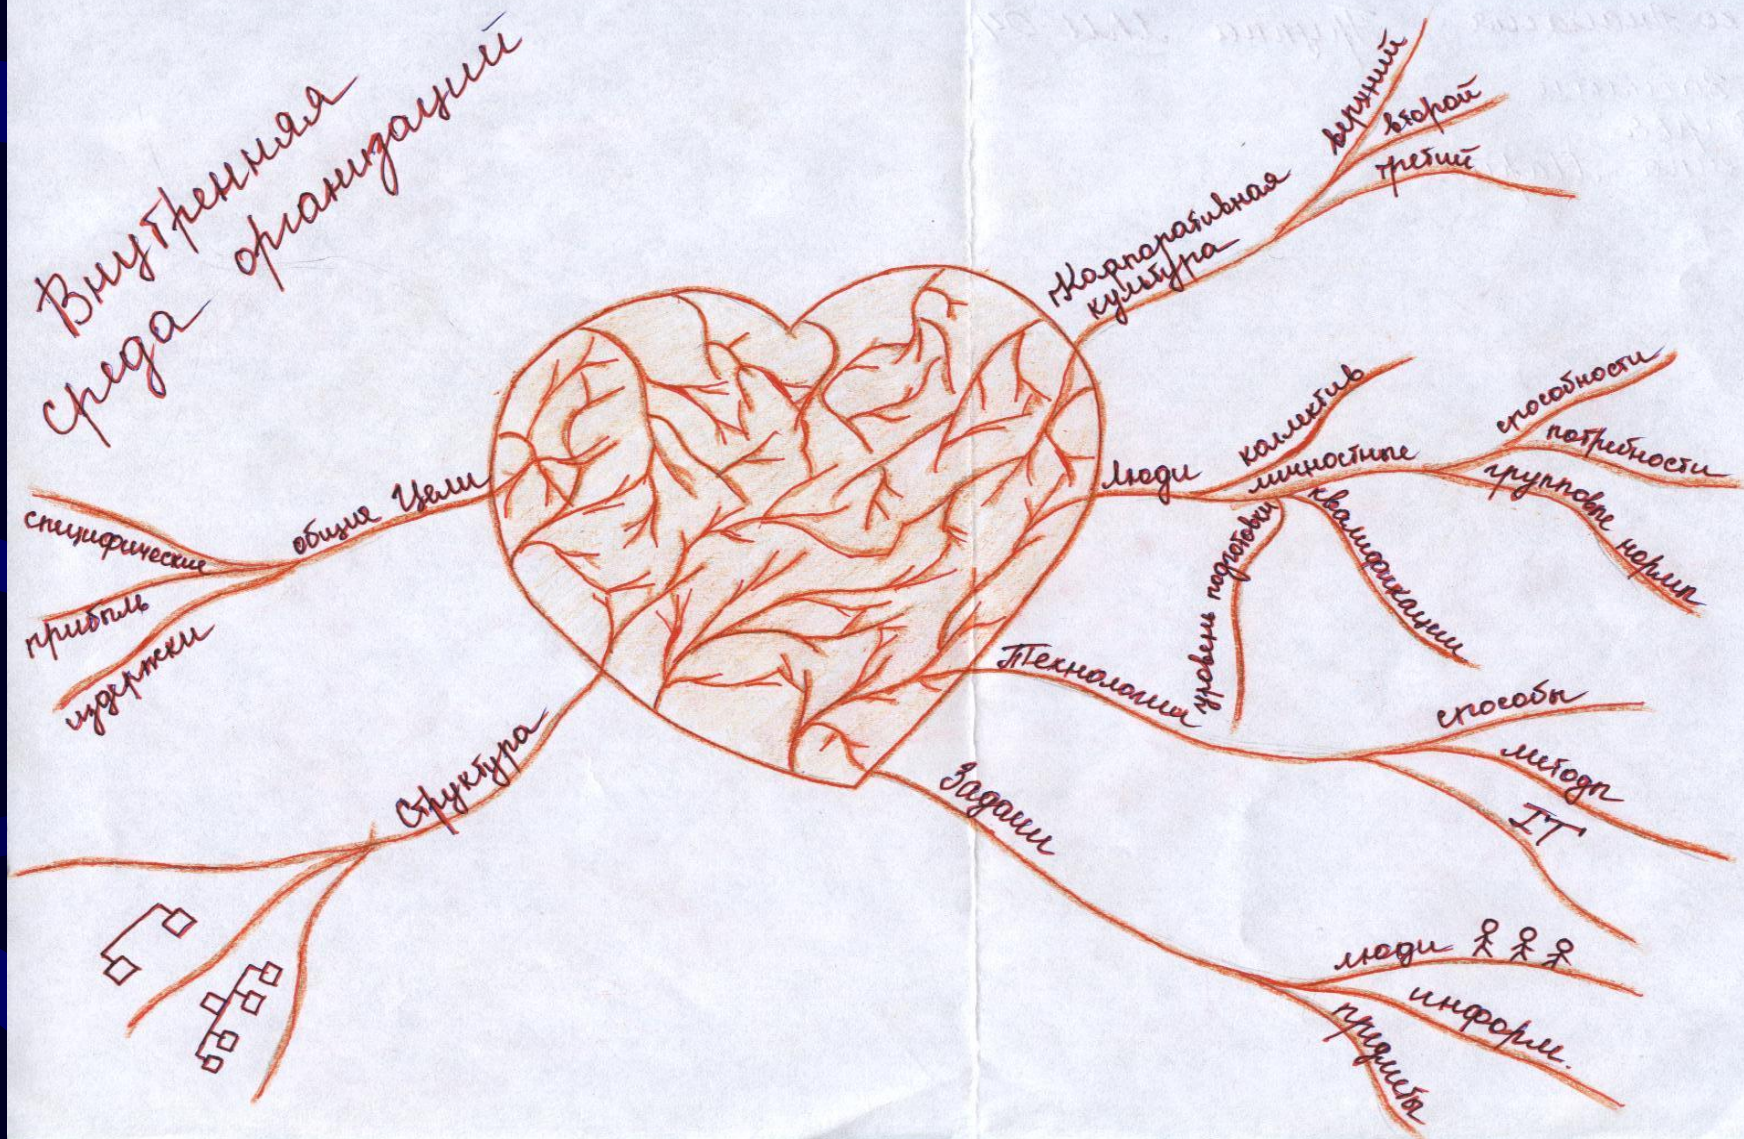 Внутренняя
среда организаций
Корпоративная
культура
верхний
второй
третий
Люди
коллектив
личностные
способности
потребности
групповые нормы
квалификации
уровень подготовки
Технологии
способы
методы
IT
Задачи
люди
информ.
предметы
Структура
Цели
общие
специфические
прибыль
издержки